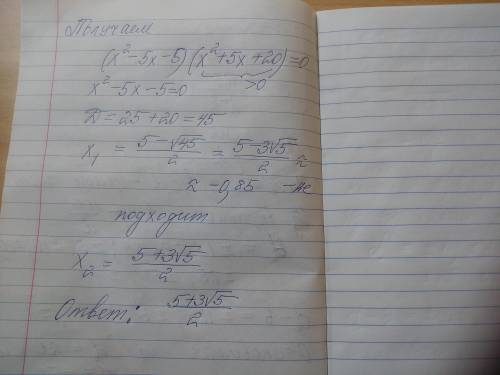 Получаем
(x²-5x-5)(x²+5x+20)=0
>0
x²-5x-5=0
D=25+20=45
x₁ = (5-√45)/2 = (5-3√5)/2 ≈
≈ -0,85 -не
подходит
x₂ = (5+3√5)/2
Ответ: (5+3√5)/2